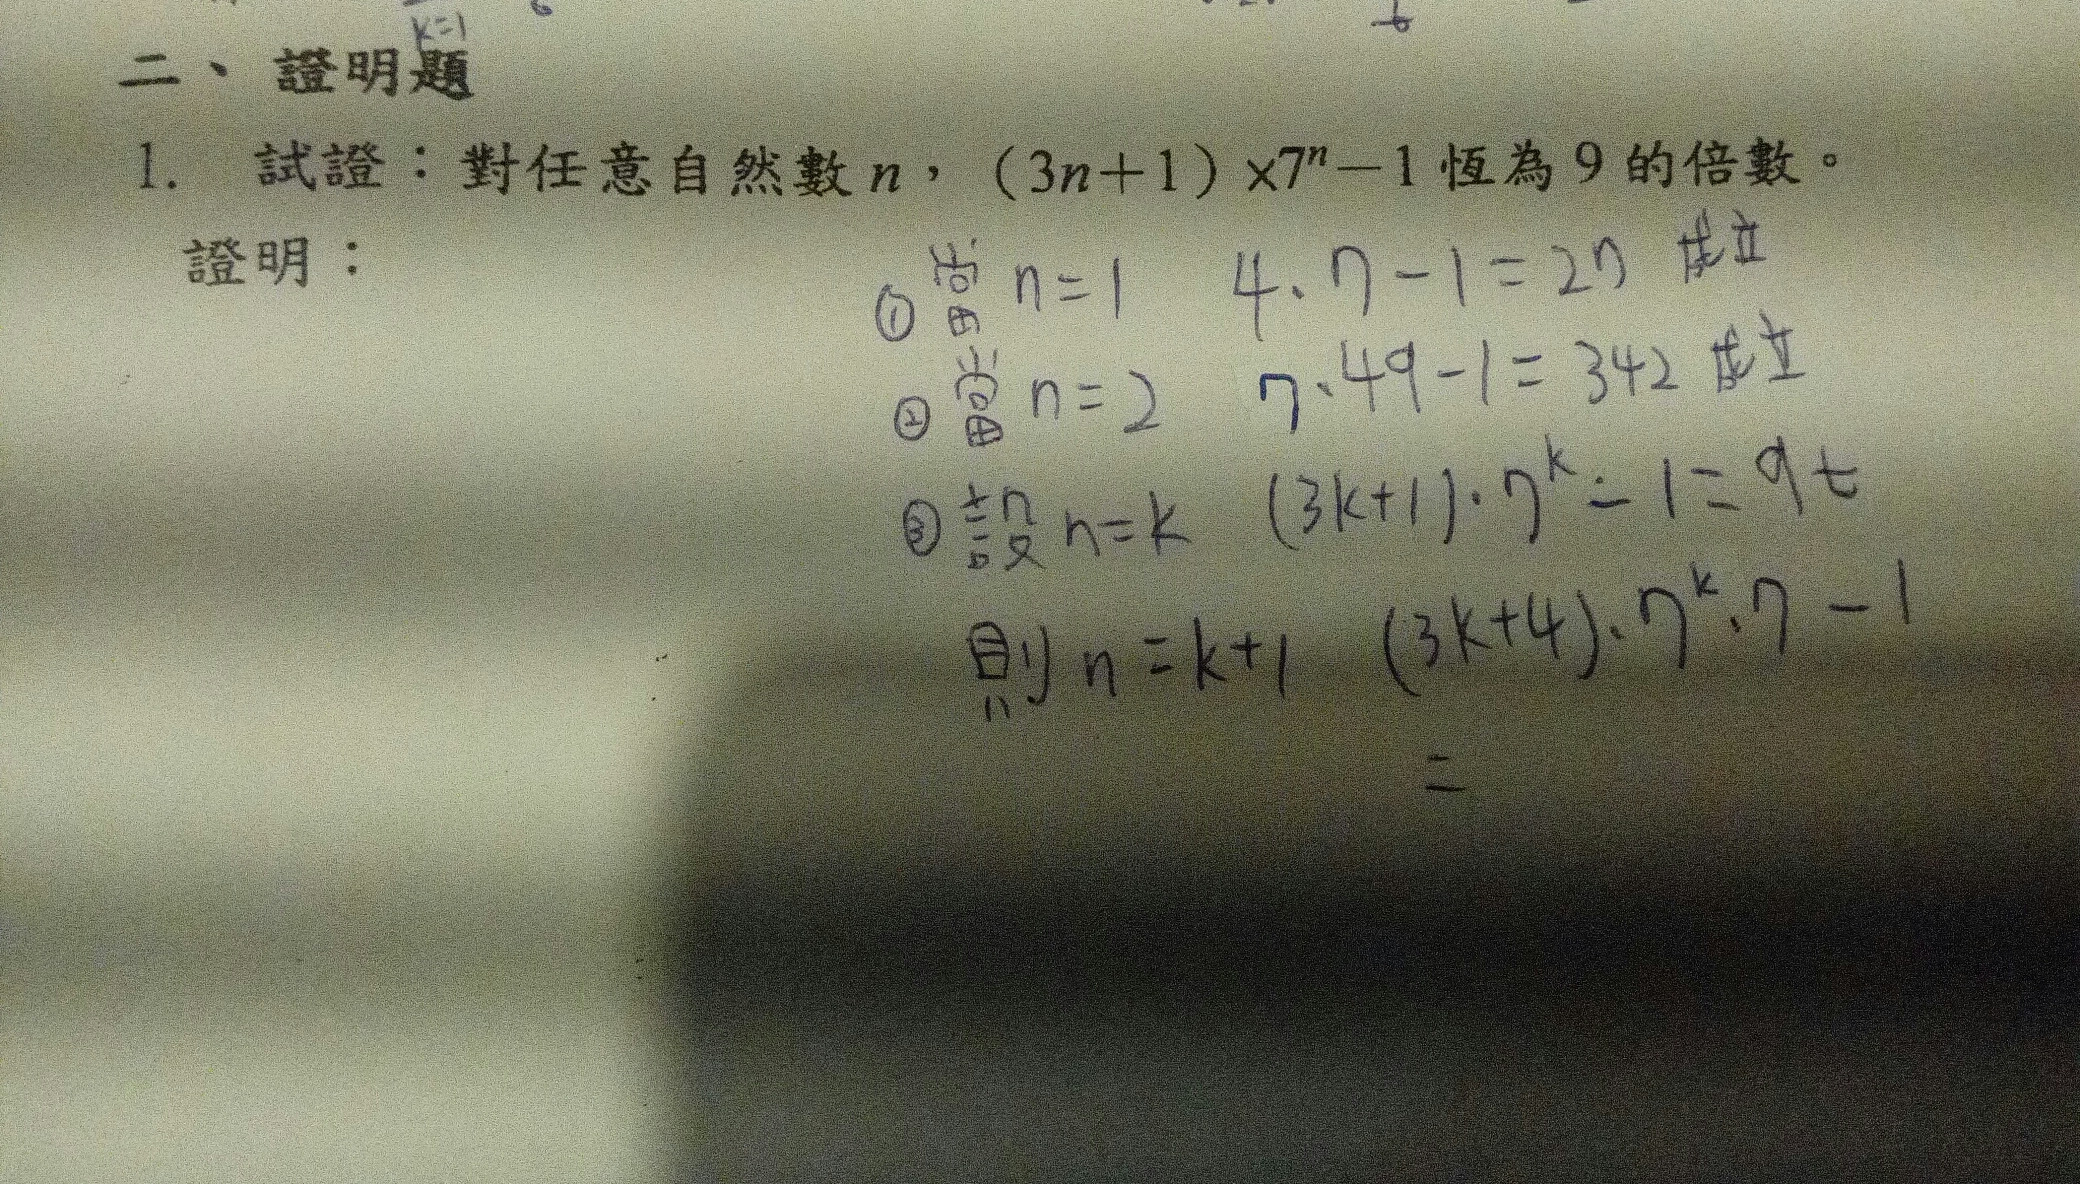 k=1
二、證明題
1. 試證：對任意自然數 n，（3n＋1）×7ⁿ－1 恆為 9 的倍數。
證明：
① 當 n=1 4·7-1=27 成立
② 當 n=2 7·49-1=342 成立
③ 設 n=k (3k+1)·7ᵏ-1=9t
則 n=k+1 (3k+4)·7ᵏ·7-1
=